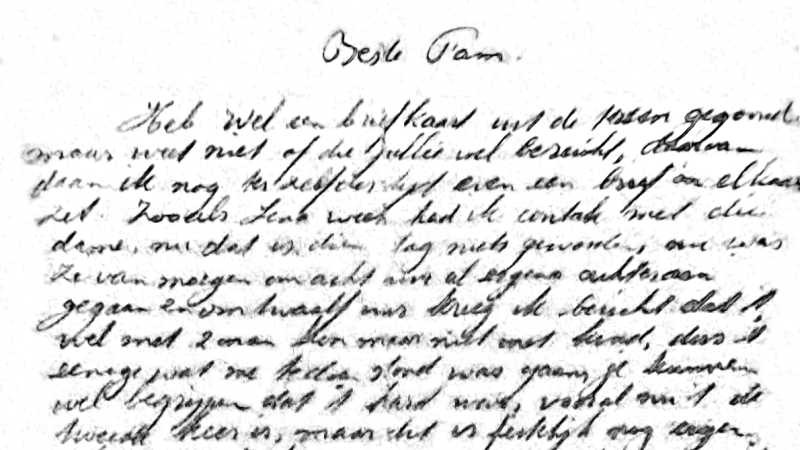 Beste Fam.
Heb wel een briefkaart uit de tussen gegooid
maar weet niet of die jullie wel bereikt, daarvan
daan ik nog ter zelfder tijd even een brief in elkaar
zet. Zooals Jena week had ik contakt met die
dame, nu dat is dien dag niets geworden, nu was
ze van morgen om acht uur al ergens achteraan
gegaan en om twaalf uur kreeg ik bericht dat 't
wel met 2 man kon maar niet met kind, dus 't
eenige wat me te doen stond was gaan, je kunnen
wel begrijpen dat 't hard was, vooral nu 't de
tweede keer is, maar dit is feitelijk nog erger